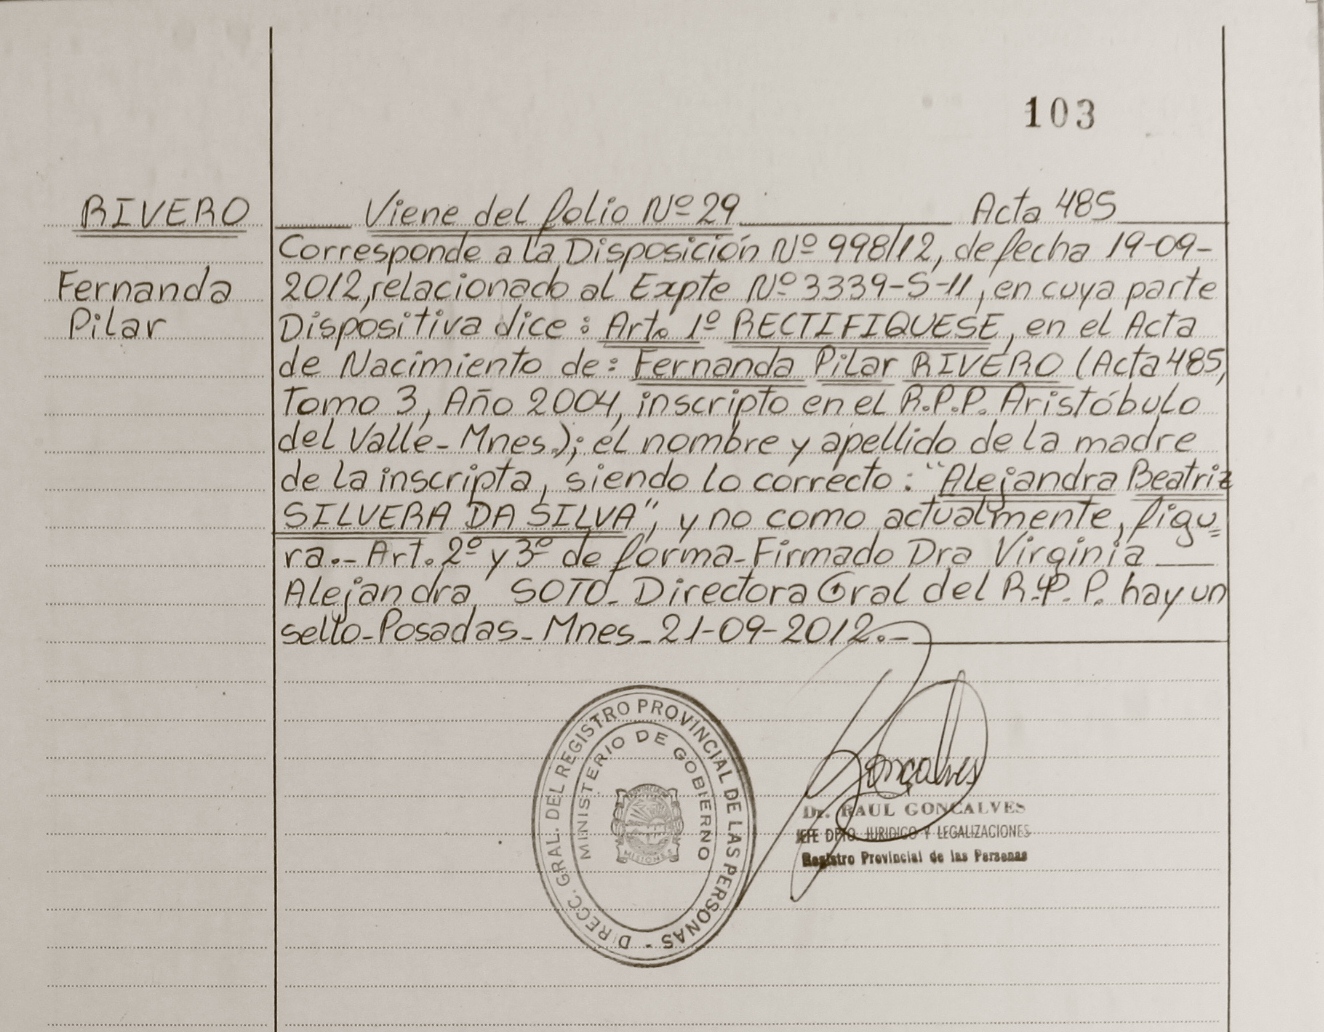 103
RIVERO
Viene del folio Nº 29 Acta 485
Corresponde a la Disposición Nº 998/12, de fecha 19-09-
Fernanda
2012, relacionado al Expte Nº 3339-S-11, en cuya parte
Pilar
Dispositiva dice: Art. 1º RECTIFIQUESE, en el Acta
de Nacimiento de: Fernanda Pilar RIVERO (Acta 485,
Tomo 3, Año 2004, inscripto en el R.P.P. Aristóbulo
del Valle-Mnes.); el nombre y apellido de la madre
de la inscripta, siendo lo correcto: "Alejandra Beatriz
SILVERA DA SILVA", y no como actualmente, figu=
ra.- Art. 2º y 3º de forma-Firmado Dra Virginia
Alejandra SOTO- Directora Gral del R.P.P. hay un
sello-Posadas-Mnes-21-09-2012.-
DIRECC. GRAL. DEL REGISTRO PROVINCIAL DE LAS PERSONAS -
MINISTERIO DE GOBIERNO
MISIONES
Gonçalves
Dr. RAUL GONCALVES
JEFE DPTO JURIDICO Y LEGALIZACIONES
Registro Provincial de las Personas